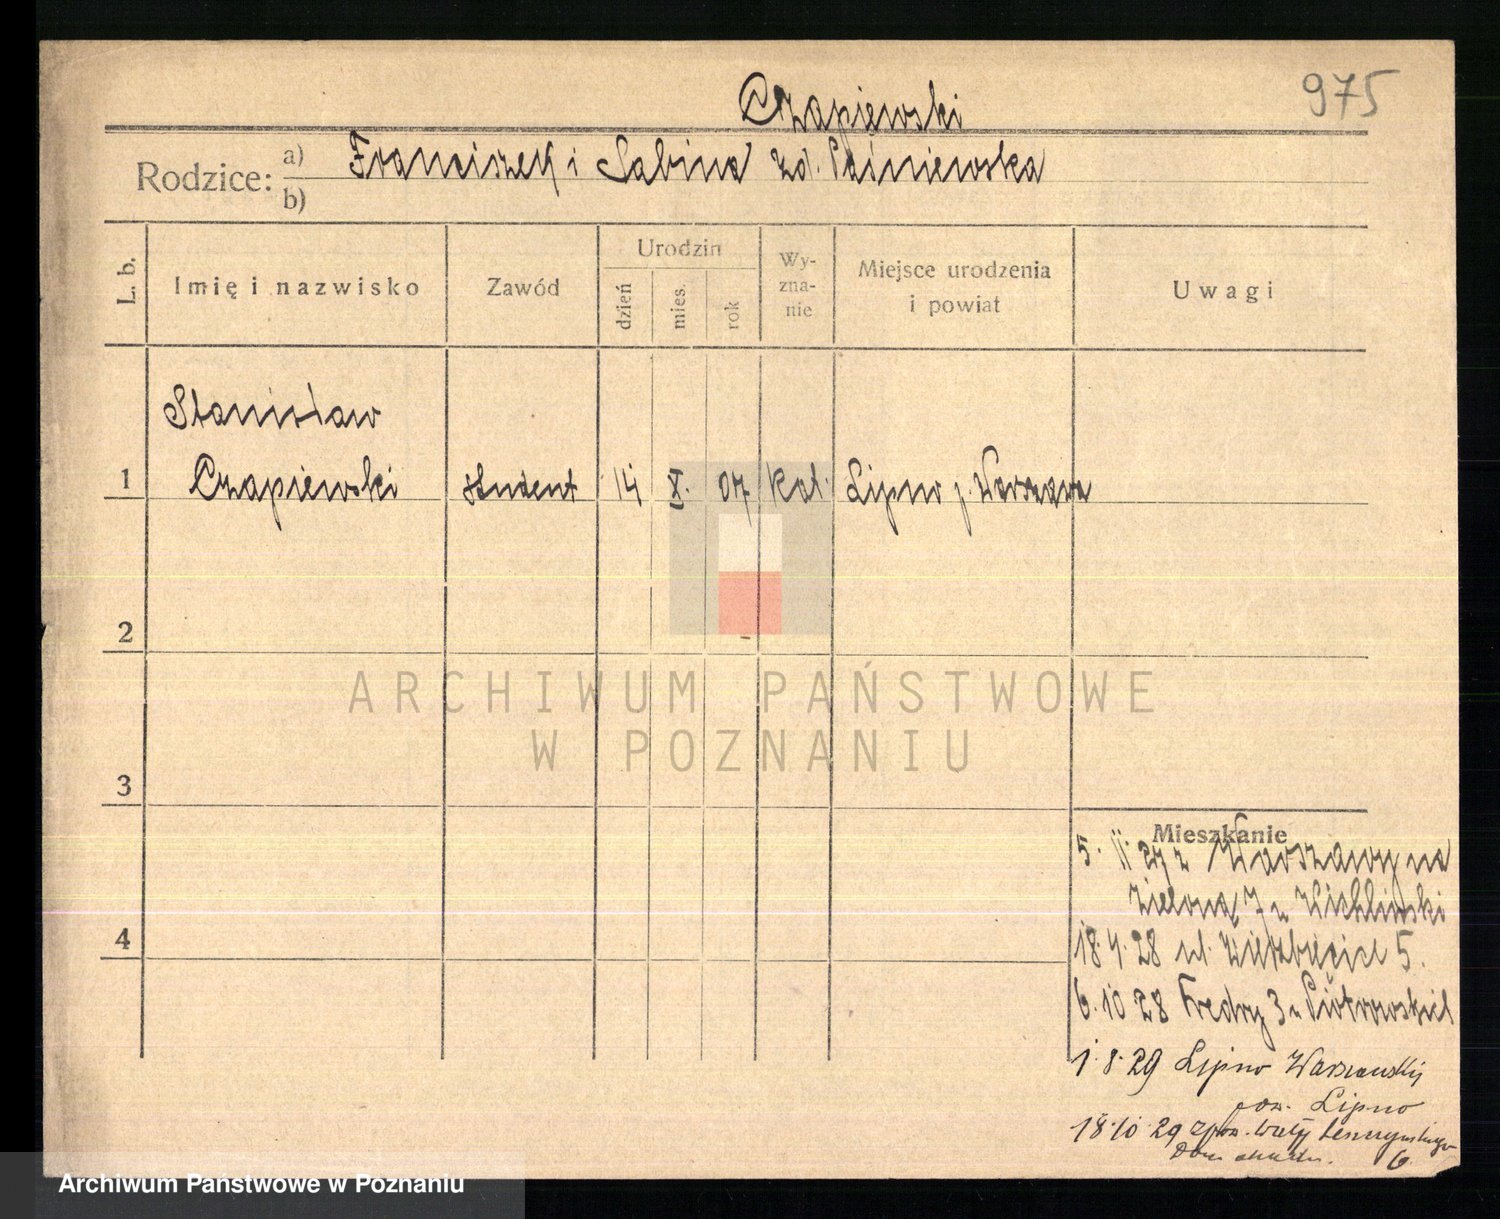 975
Czapiewski
Rodzice: a) Franciszek i Sabina zd. Paśniewska
b)
L. b.
Imię i nazwisko
Zawód
Urodzin
dzień
mies.
rok
Wy-
zna-
nie
Miejsce urodzenia
i powiat
Uwagi
Stanisław
1 Czapiewski student 14 X. 07 kat. Lipno p. Warszawa
2
3
4
ARCHIWUM PAŃSTWOWE
W POZNANIU
Mieszkanie
5. 11. 27 z Warszawy na
Zieloną 7 u Wichliński
18.4.28 ul. Wierzbięcice 5.
6.10 28 Fredry 3 u Piotrowskich
1.8.29 Lipno Warszawskij
pow. Lipno
18.10.29 Wały Leszczyńskiego
Dom 6
Archiwum Państwowe w Poznaniu